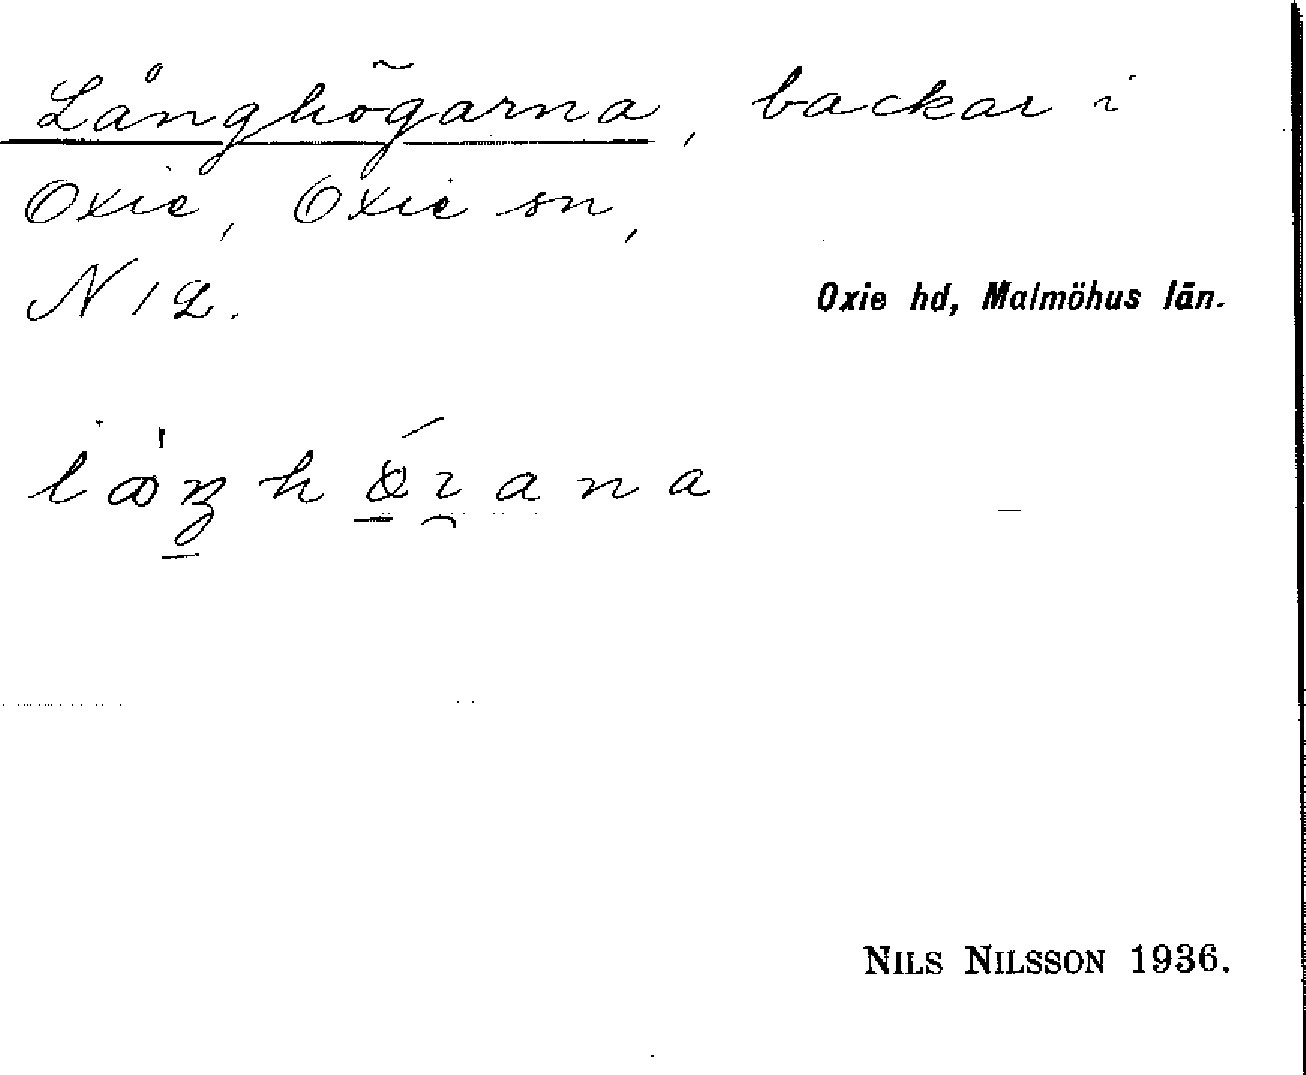 Långhögarna, backar i
Oxie, Oxie sn,
N 12.
Oxie hd, Malmöhus län.
NILS NILSSON 1936.